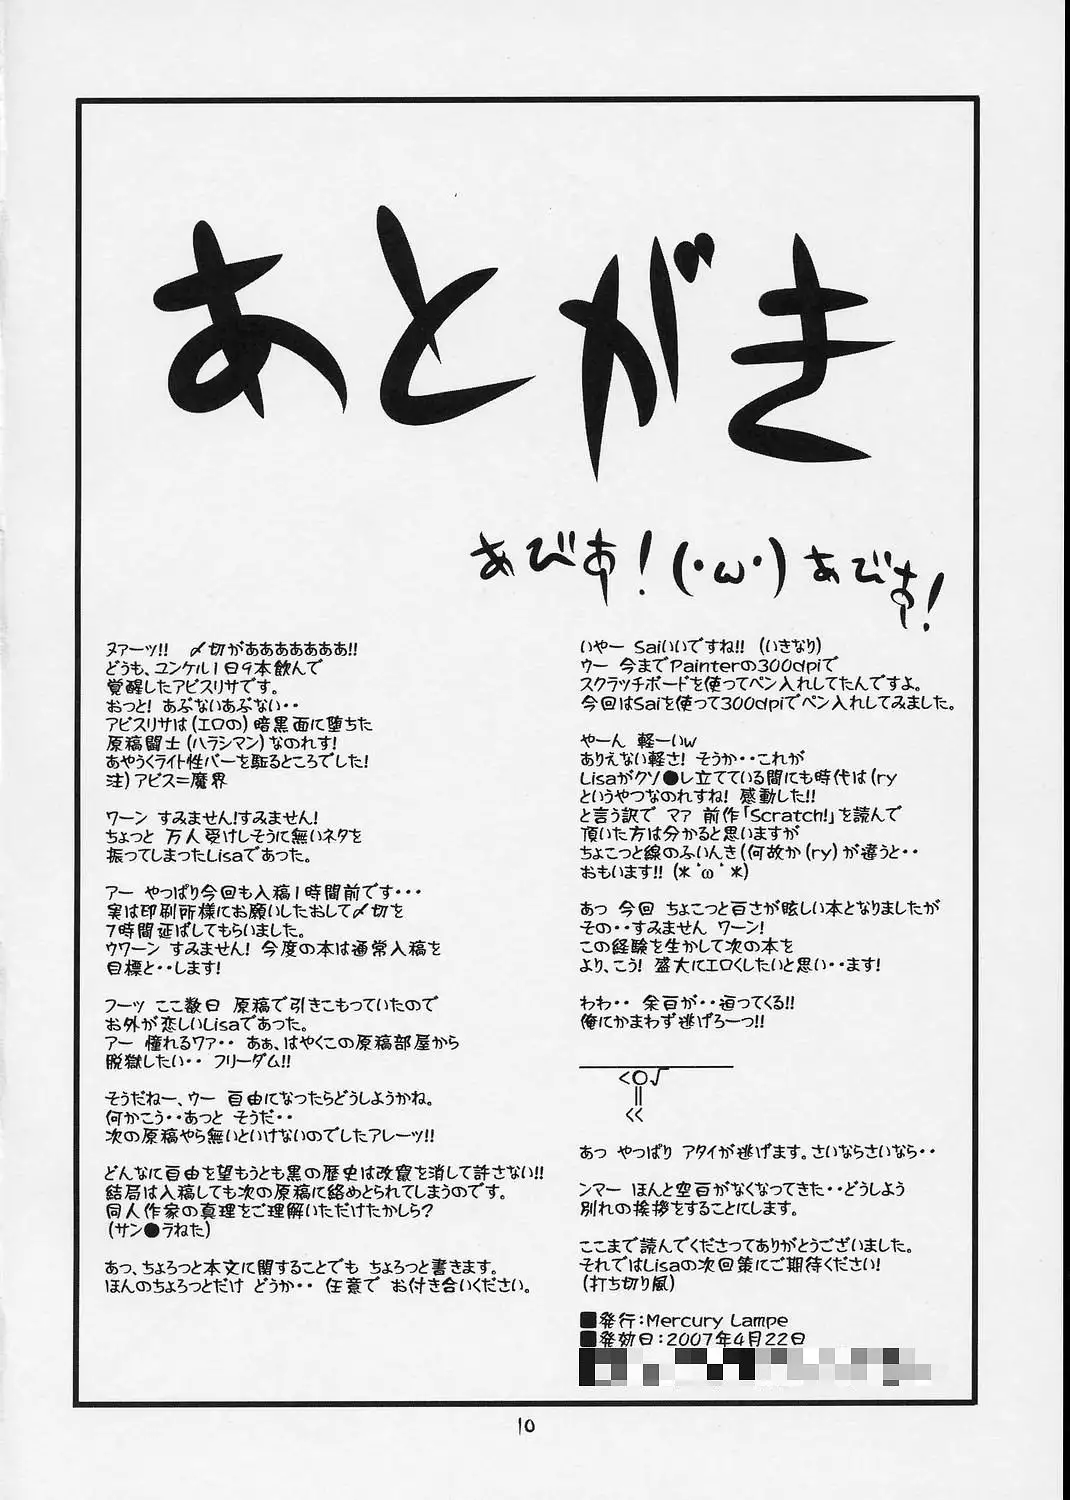 あとがき
あびす!(・ω・)あびす!
ヌァーッ!! 〆切がああああああ!!
どうも、ユンケル1日9本飲んで
覚醒したアビスリサです。
おっと! あぶないあぶない・・
アビスリサは(エロの)暗黒面に堕ちた
原稿闘士(ハラシマン)なのれす!
あやうくライト性バーを駈るところでした!
注)アビス=魔界
ワーン すみません!すみません!
ちょっと 万人受けしそうに無いネタを
振ってしまったLisaであった。
アー やっぱり今回も入稿1時間前です・・・
実は印刷所様にお願いしたおして〆切を
7時間延ばしてもらいました。
ウワーン すみません! 今度の本は通常入稿を
目標と・・します!
フーッ ここ数日 原稿で引きこもっていたので
お外が恋しいLisaであった。
アー 憧れるワァ・・ あぁ、はやくこの原稿部屋から
脱獄したい・・ フリーダム!!
そうだねー、ウー 自由になったらどうしようかね。
何かこう・・あっと そうだ・・
次の原稿やら無いといけないのでしたアレーッ!!
どんなに自由を望もうとも黒の歴史は改竄を消して許さない!!
結局は入稿しても次の原稿に絡めとられてしまうのです。
同人作家の真理をご理解いただけたかしら?
(サン●ラねた)
あっ、ちょろっと本文に関することでも ちょろっと書きます。
ほんのちょろっとだけ どうか・・ 任意で お付き合いください。
いやー Saiいいですね!! (いきなり)
ウー 今までPainterの300dpiで
スクラッチボードを使ってペン入れしてたんですよ。
今回はSaiを使って300dpiでペン入れしてみました。
やーん 軽ーいw
ありえない軽さ! そうか・・これが
Lisaがクソ●レ立てている間にも時代は(ry
というやつなのれすね! 感動した!!
と言う訳で マァ 前作「Scratch!」を読んで
頂いた方は分かると思いますが
ちょこっと線のふいんき(何故か(ry)が違うと・・
おもいます!! (*´ω`*)
あっ 今回 ちょこっと白さが眩しい本となりましたが
その・・すみません ワーン!
この経験を生かして次の本を
より、こう! 盛大にエロくしたいと思い・・ます!
わわ・・ 余白が・・迫ってくる!!
俺にかまわず逃げろーっ!!
<○√
‖
<<
あっ やっぱり アタイが逃げます。さいならさいなら・・
ンマー ほんと空白がなくなってきた・・どうしよう
別れの挨拶をすることにします。
ここまで読んでくださってありがとうございました。
それではLisaの次回策にご期待ください!
(打ち切り風)
■発行:Mercury Lampe
■発効日:2007年4月22日
10